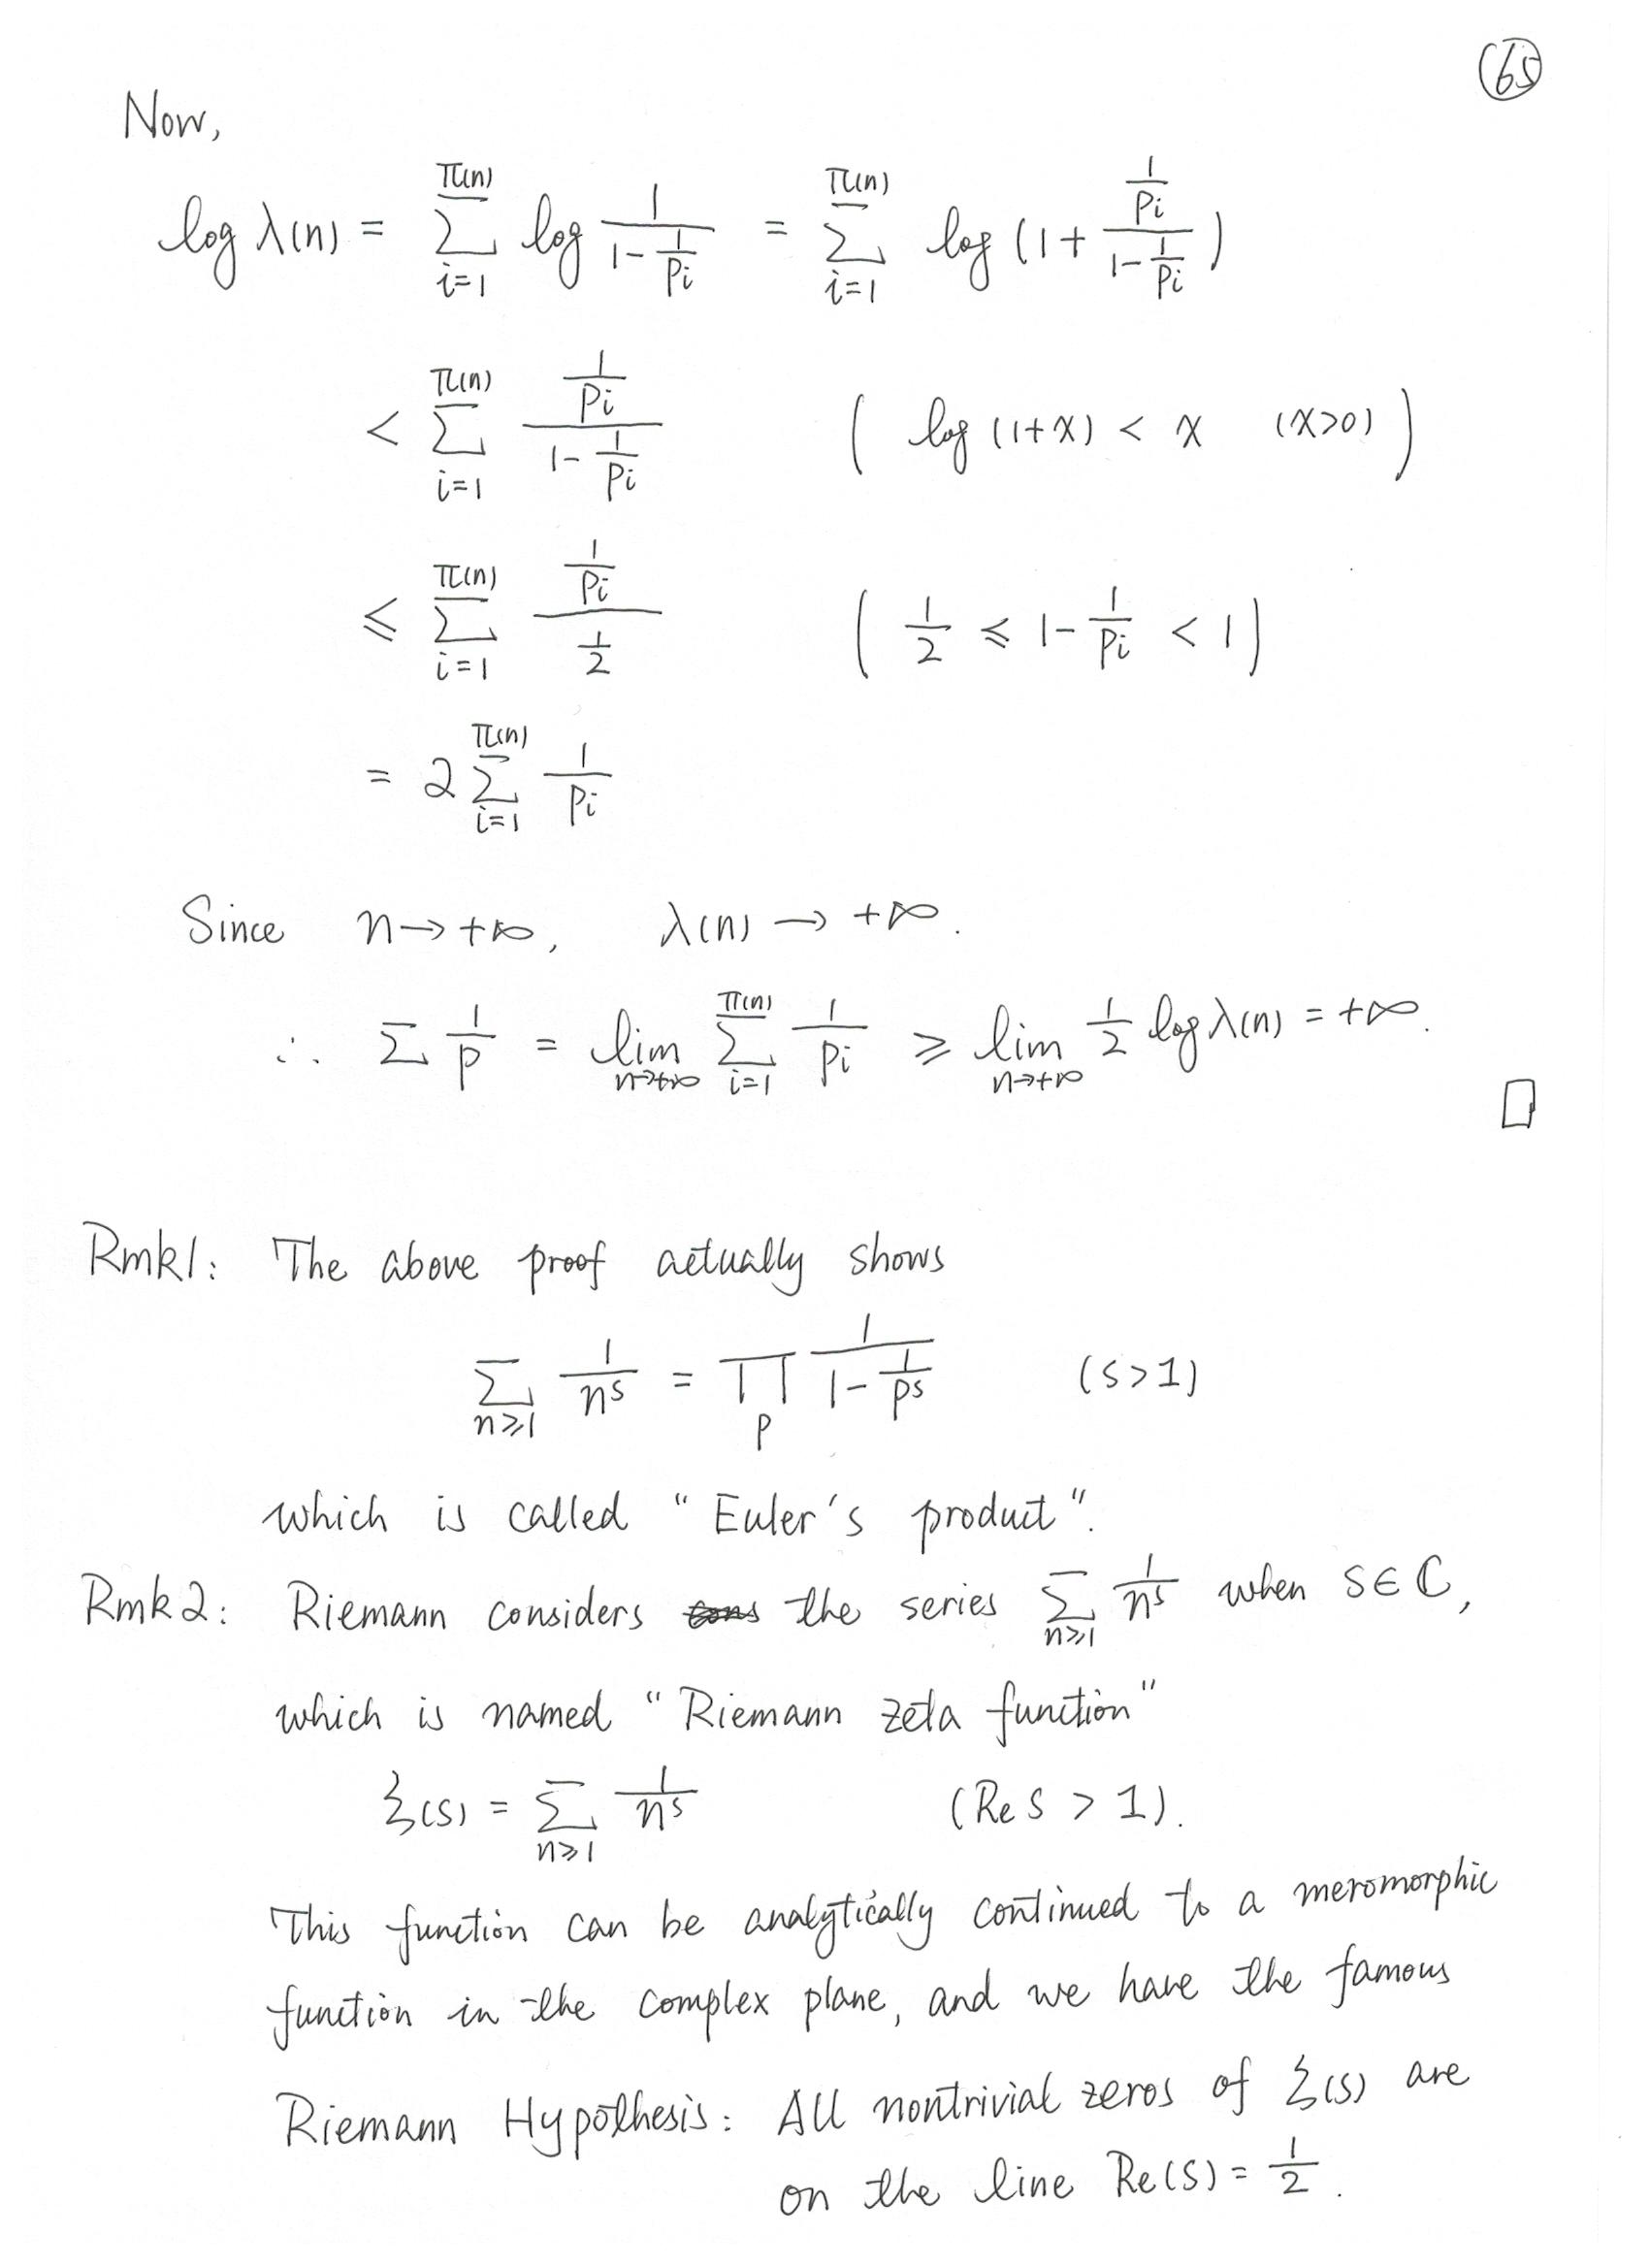 65
Now,
log λ(n) = ∑_{i=1}^{π(n)} log \frac{1}{1-\frac{1}{p_i}} = ∑_{i=1}^{π(n)} log (1 + \frac{\frac{1}{p_i}}{1-\frac{1}{p_i}})
< ∑_{i=1}^{π(n)} \frac{\frac{1}{p_i}}{1-\frac{1}{p_i}} ( log (1+x) < x (x>0) )
≤ ∑_{i=1}^{π(n)} \frac{\frac{1}{p_i}}{\frac{1}{2}} ( \frac{1}{2} ≤ 1-\frac{1}{p_i} < 1 )
= 2 ∑_{i=1}^{π(n)} \frac{1}{p_i}
Since n → +∞, λ(n) → +∞.
∴ ∑ \frac{1}{p} = lim_{n→+∞} ∑_{i=1}^{π(n)} \frac{1}{p_i} ≥ lim_{n→+∞} \frac{1}{2} log λ(n) = +∞.
□
Rmk1: The above proof actually shows
∑_{n≥1} \frac{1}{n^s} = ∏_p \frac{1}{1-\frac{1}{p^s}} (s>1)
which is called "Euler's product".
Rmk2: Riemann considers the series ∑_{n≥1} \frac{1}{n^s} when s∈ℂ,
which is named "Riemann zeta function"
ζ(s) = ∑_{n≥1} \frac{1}{n^s} (Re s > 1).
This function can be analytically continued to a meromorphic
function in the complex plane, and we have the famous
Riemann Hypothesis: All nontrivial zeros of ζ(s) are
on the line Re(s) = \frac{1}{2}.